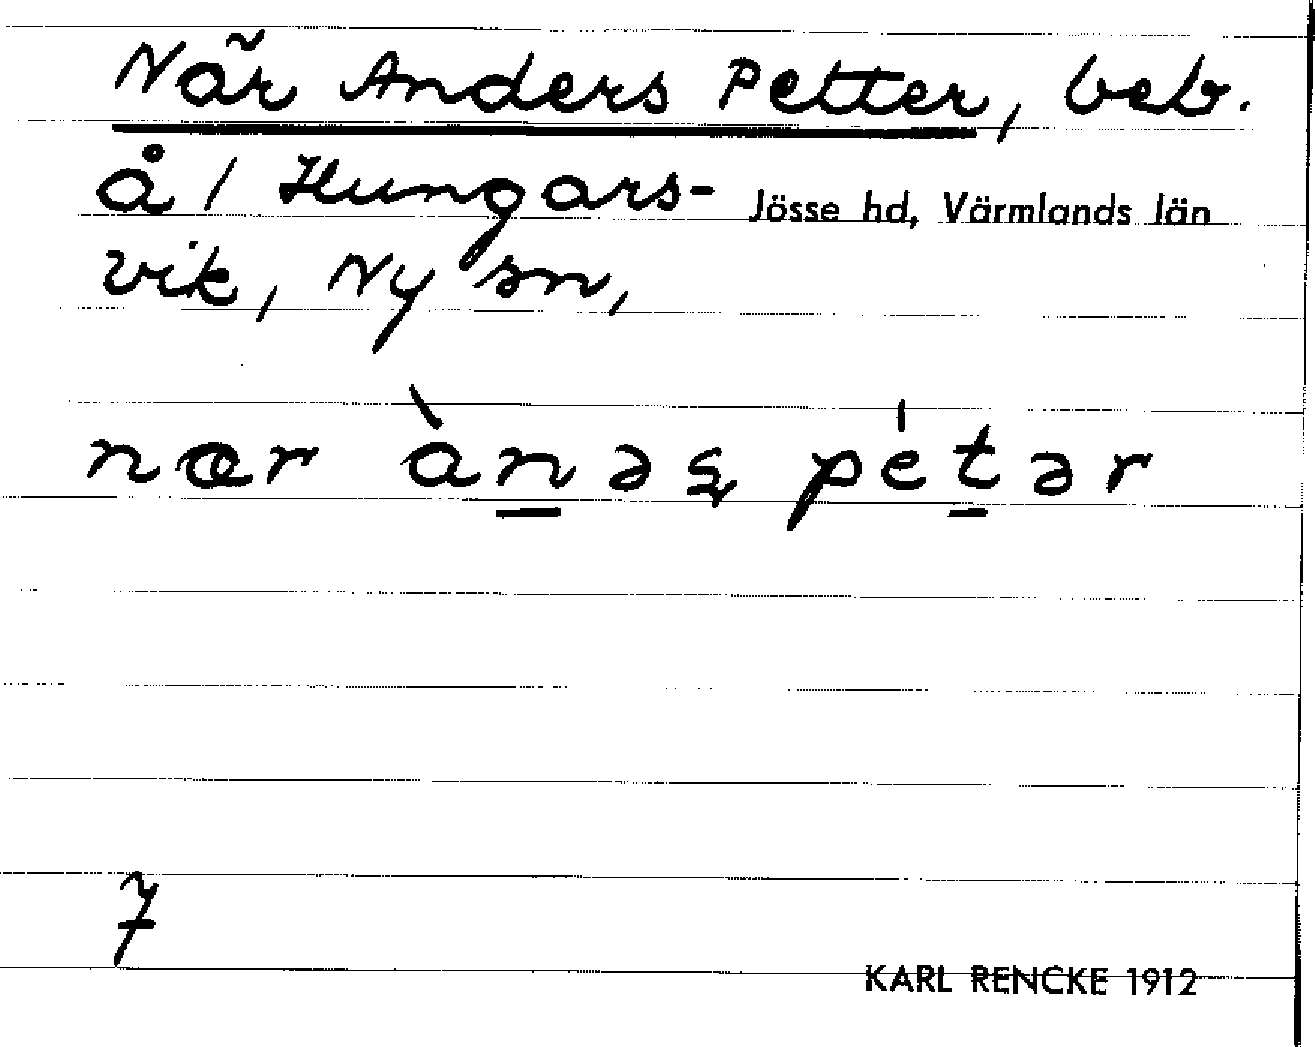 När Anders Petter, beb.
å / Hungars- Jösse hd, Värmlands län
vik, Ny sn,
nær ànəs̨ pétər
7
KARL RENCKE 1912